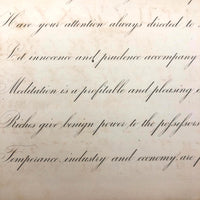 Have your attention always directed to
Let innocence and prudence accompany
Meditation is a profitable and pleasing
Riches give benign power to the possessors
Temperance, industry and economy, are